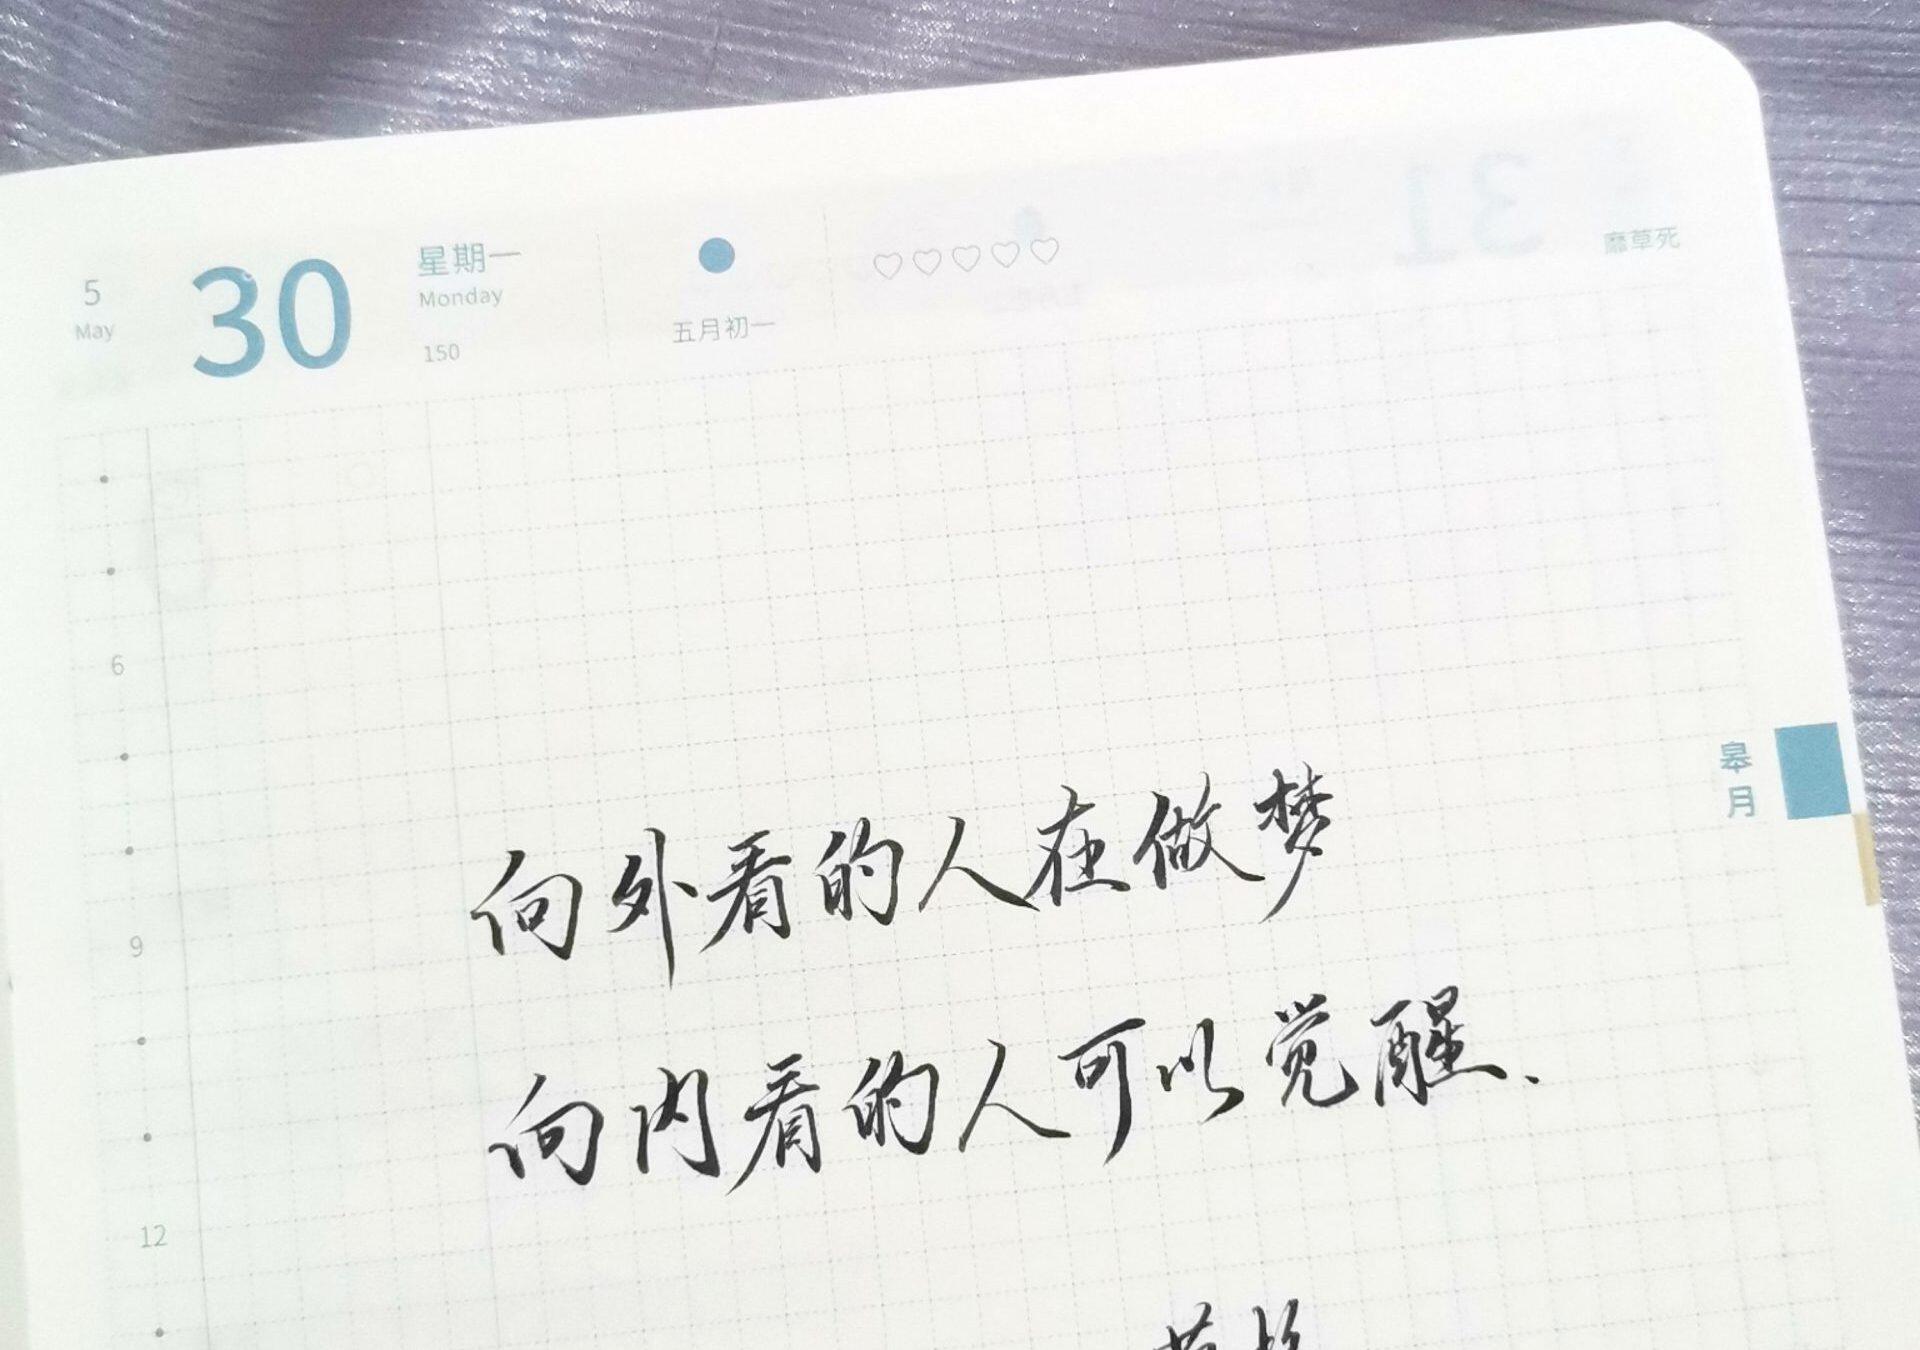 5
May
30
星期一
Monday
150
五月初一
靡草死
6
9
12
皋月
向外看的人在做梦
向内看的人可以觉醒.